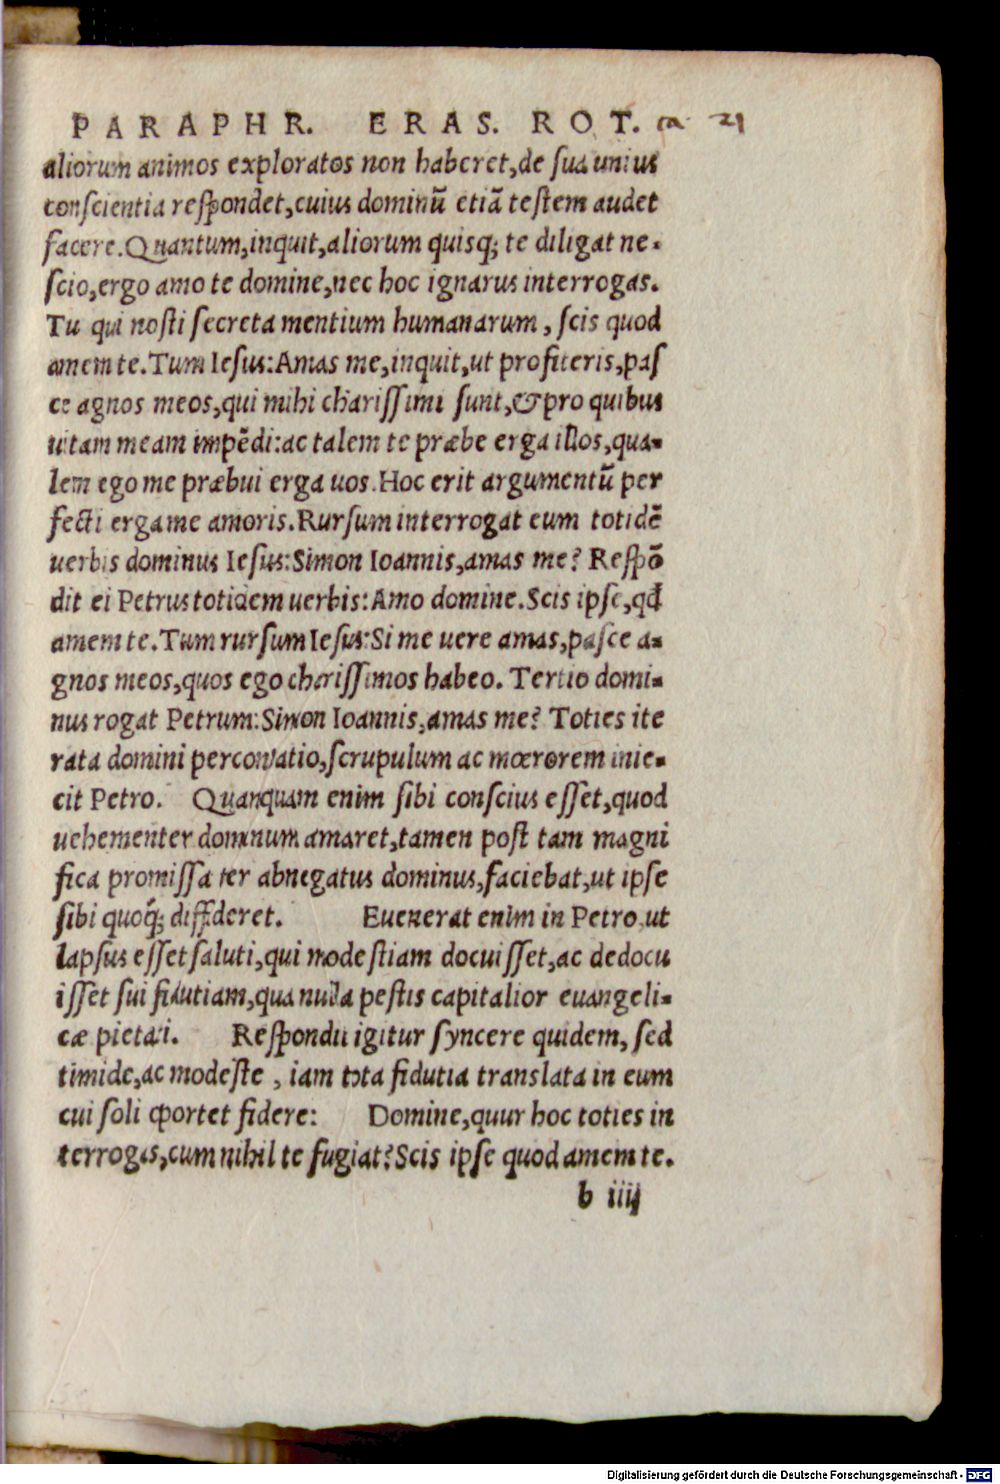 PARAPHR. ERAS. ROT. ca 21
aliorum animos exploratos non haberet,de ſua unius
conſcientia reſpondet,cuius dominũ etiã teſtem audet
facere.Quantum,inquit,aliorum quisq; te diligat ne-
ſcio,ergo amo te domine,nec hoc ignarus interrogas.
Tu qui noſti ſecreta mentium humanarum, ſcis quod
amem te.Tum Ieſus:Amas me,inquit,ut profiteris,paſ
ce agnos meos,qui mihi chariſſimi ſunt,& pro quibus
uitam meam impẽdi:ac talem te præbe erga illos,qua-
lem ego me præbui erga uos.Hoc erit argumentũ per
fecti erga me amoris.Rurſum interrogat eum totidẽ
uerbis dominus Ieſus:Simon Ioannis,amas me? Reſpõ
dit ei Petrus totidem uerbis:Amo domine.Scis ipſe,qđ
amem te.Tum rurſum Ieſus:Si me uere amas,paſce a-
gnos meos,quos ego chariſſimos habeo. Tertio domi-
nus rogat Petrum:Simon Ioannis,amas me? Toties ite
rata domini percontatio,ſcrupulum ac mœrorem inie-
cit Petro. Quanquam enim ſibi conſcius eſſet,quod
uehementer dominum amaret,tamen poſt tam magni
fica promiſſa ter abnegatus dominus,faciebat,ut ipſe
ſibi quoq; diffideret. Euenerat enim in Petro,ut
lapſus eſſet ſaluti,qui modeſtiam docuiſſet,ac dedocu
iſſet ſui fidutiam,qua nulla peſtis capitalior euangeli-
cæ pietati. Respondit igitur ſyncere quidem, ſed
timide,ac modeſte , iam tota fidutia translata in eum
cui ſoli oportet fidere: Domine,quur hoc toties in
terrogas,cum nihil te fugiat?Scis ipſe quod amem te.
b iiij
Digitalisierung gefördert durch die Deutsche Forschungsgemeinschaft - DFG